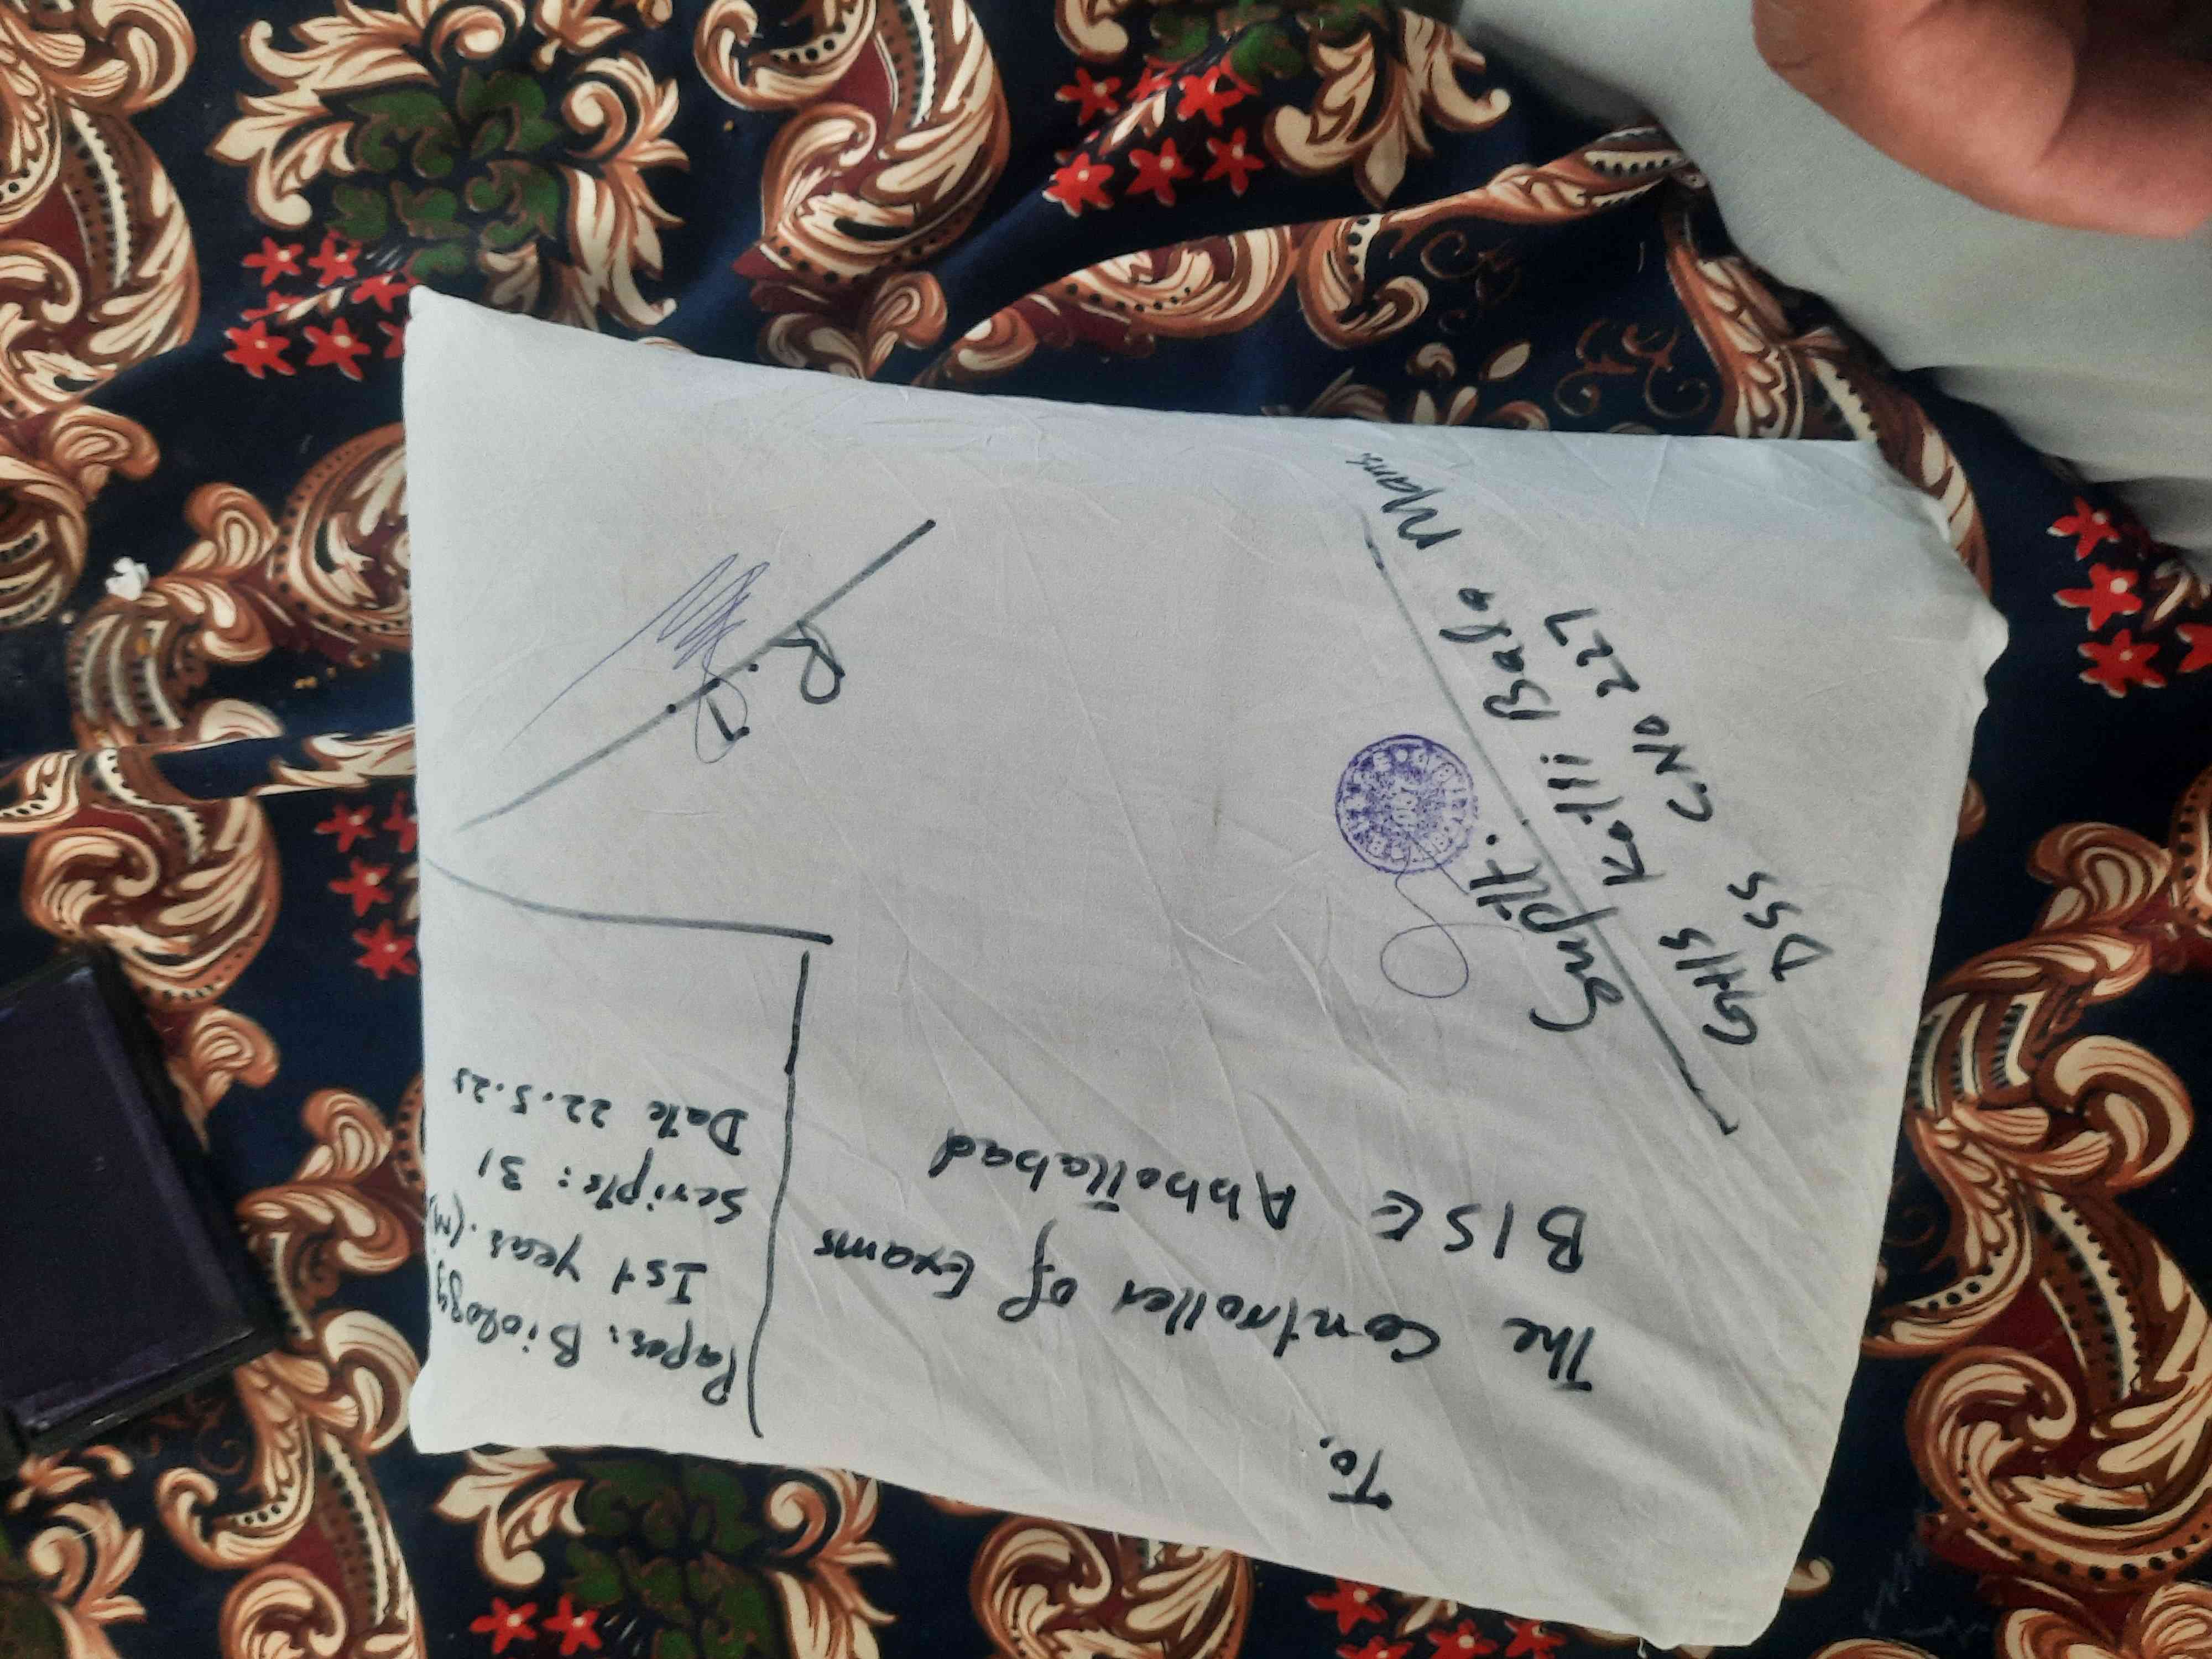 Paper: Biology
Ist year (M)
Scripts: 31
Date 22.5.25
To,
The Controller of Exams
BISE Abbottabad
R.I
Suptt.
GHS Kotli Bala Mans.
C.NO 227
DSS